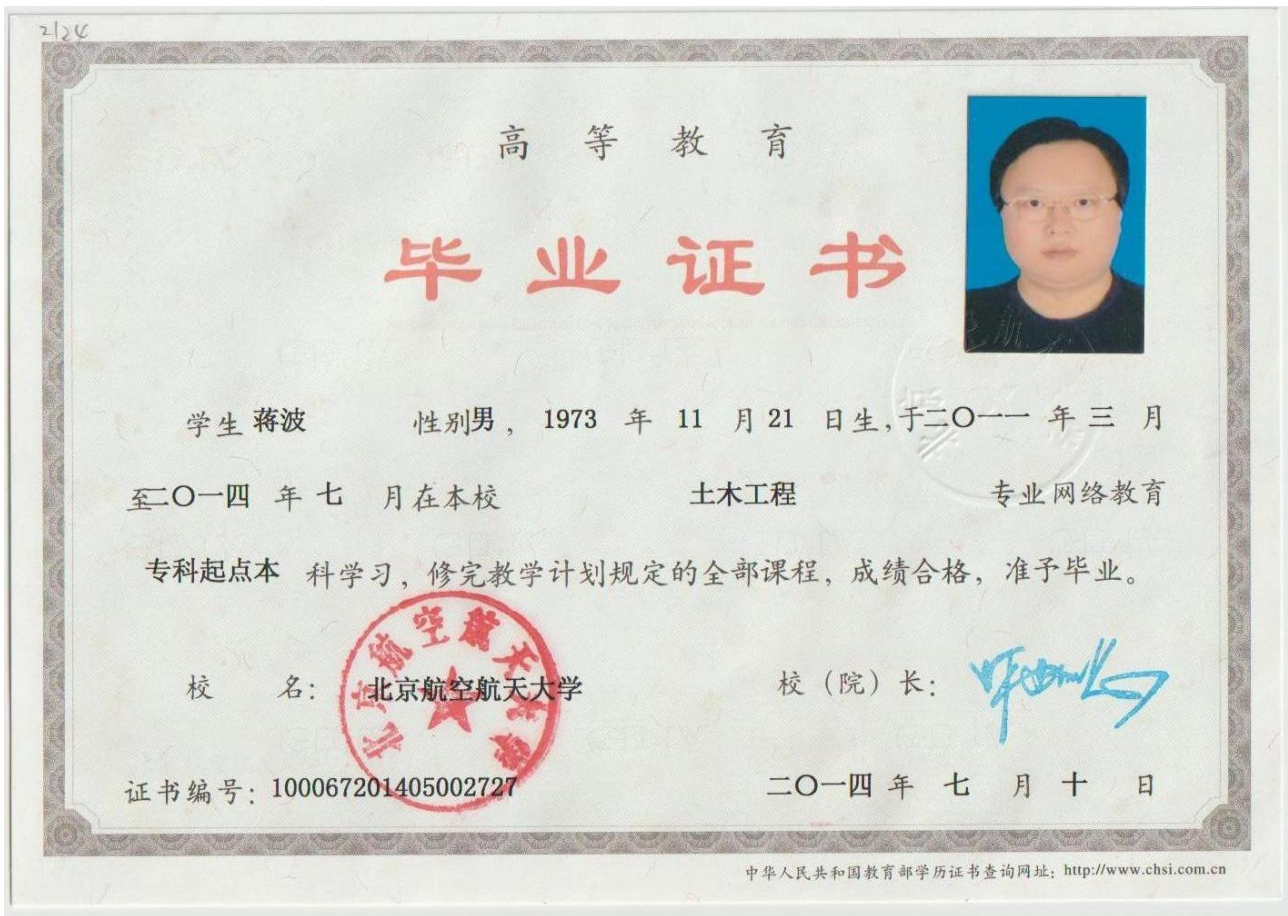 2124
高等教育
毕业证书
学生 蒋波 性别男，1973 年 11 月 21 日生，于二〇一一 年 三 月
至二〇一四 年 七 月在本校 土木工程 专业网络教育
专科起点本 科学习，修完教学计划规定的全部课程，成绩合格，准予毕业。
北京航空航天大学
校 名：北京航空航天大学 校（院）长：
证书编号：100067201405002727 二〇一四 年 七 月 十 日
中华人民共和国教育部学历证书查询网址：http://www.chsi.com.cn